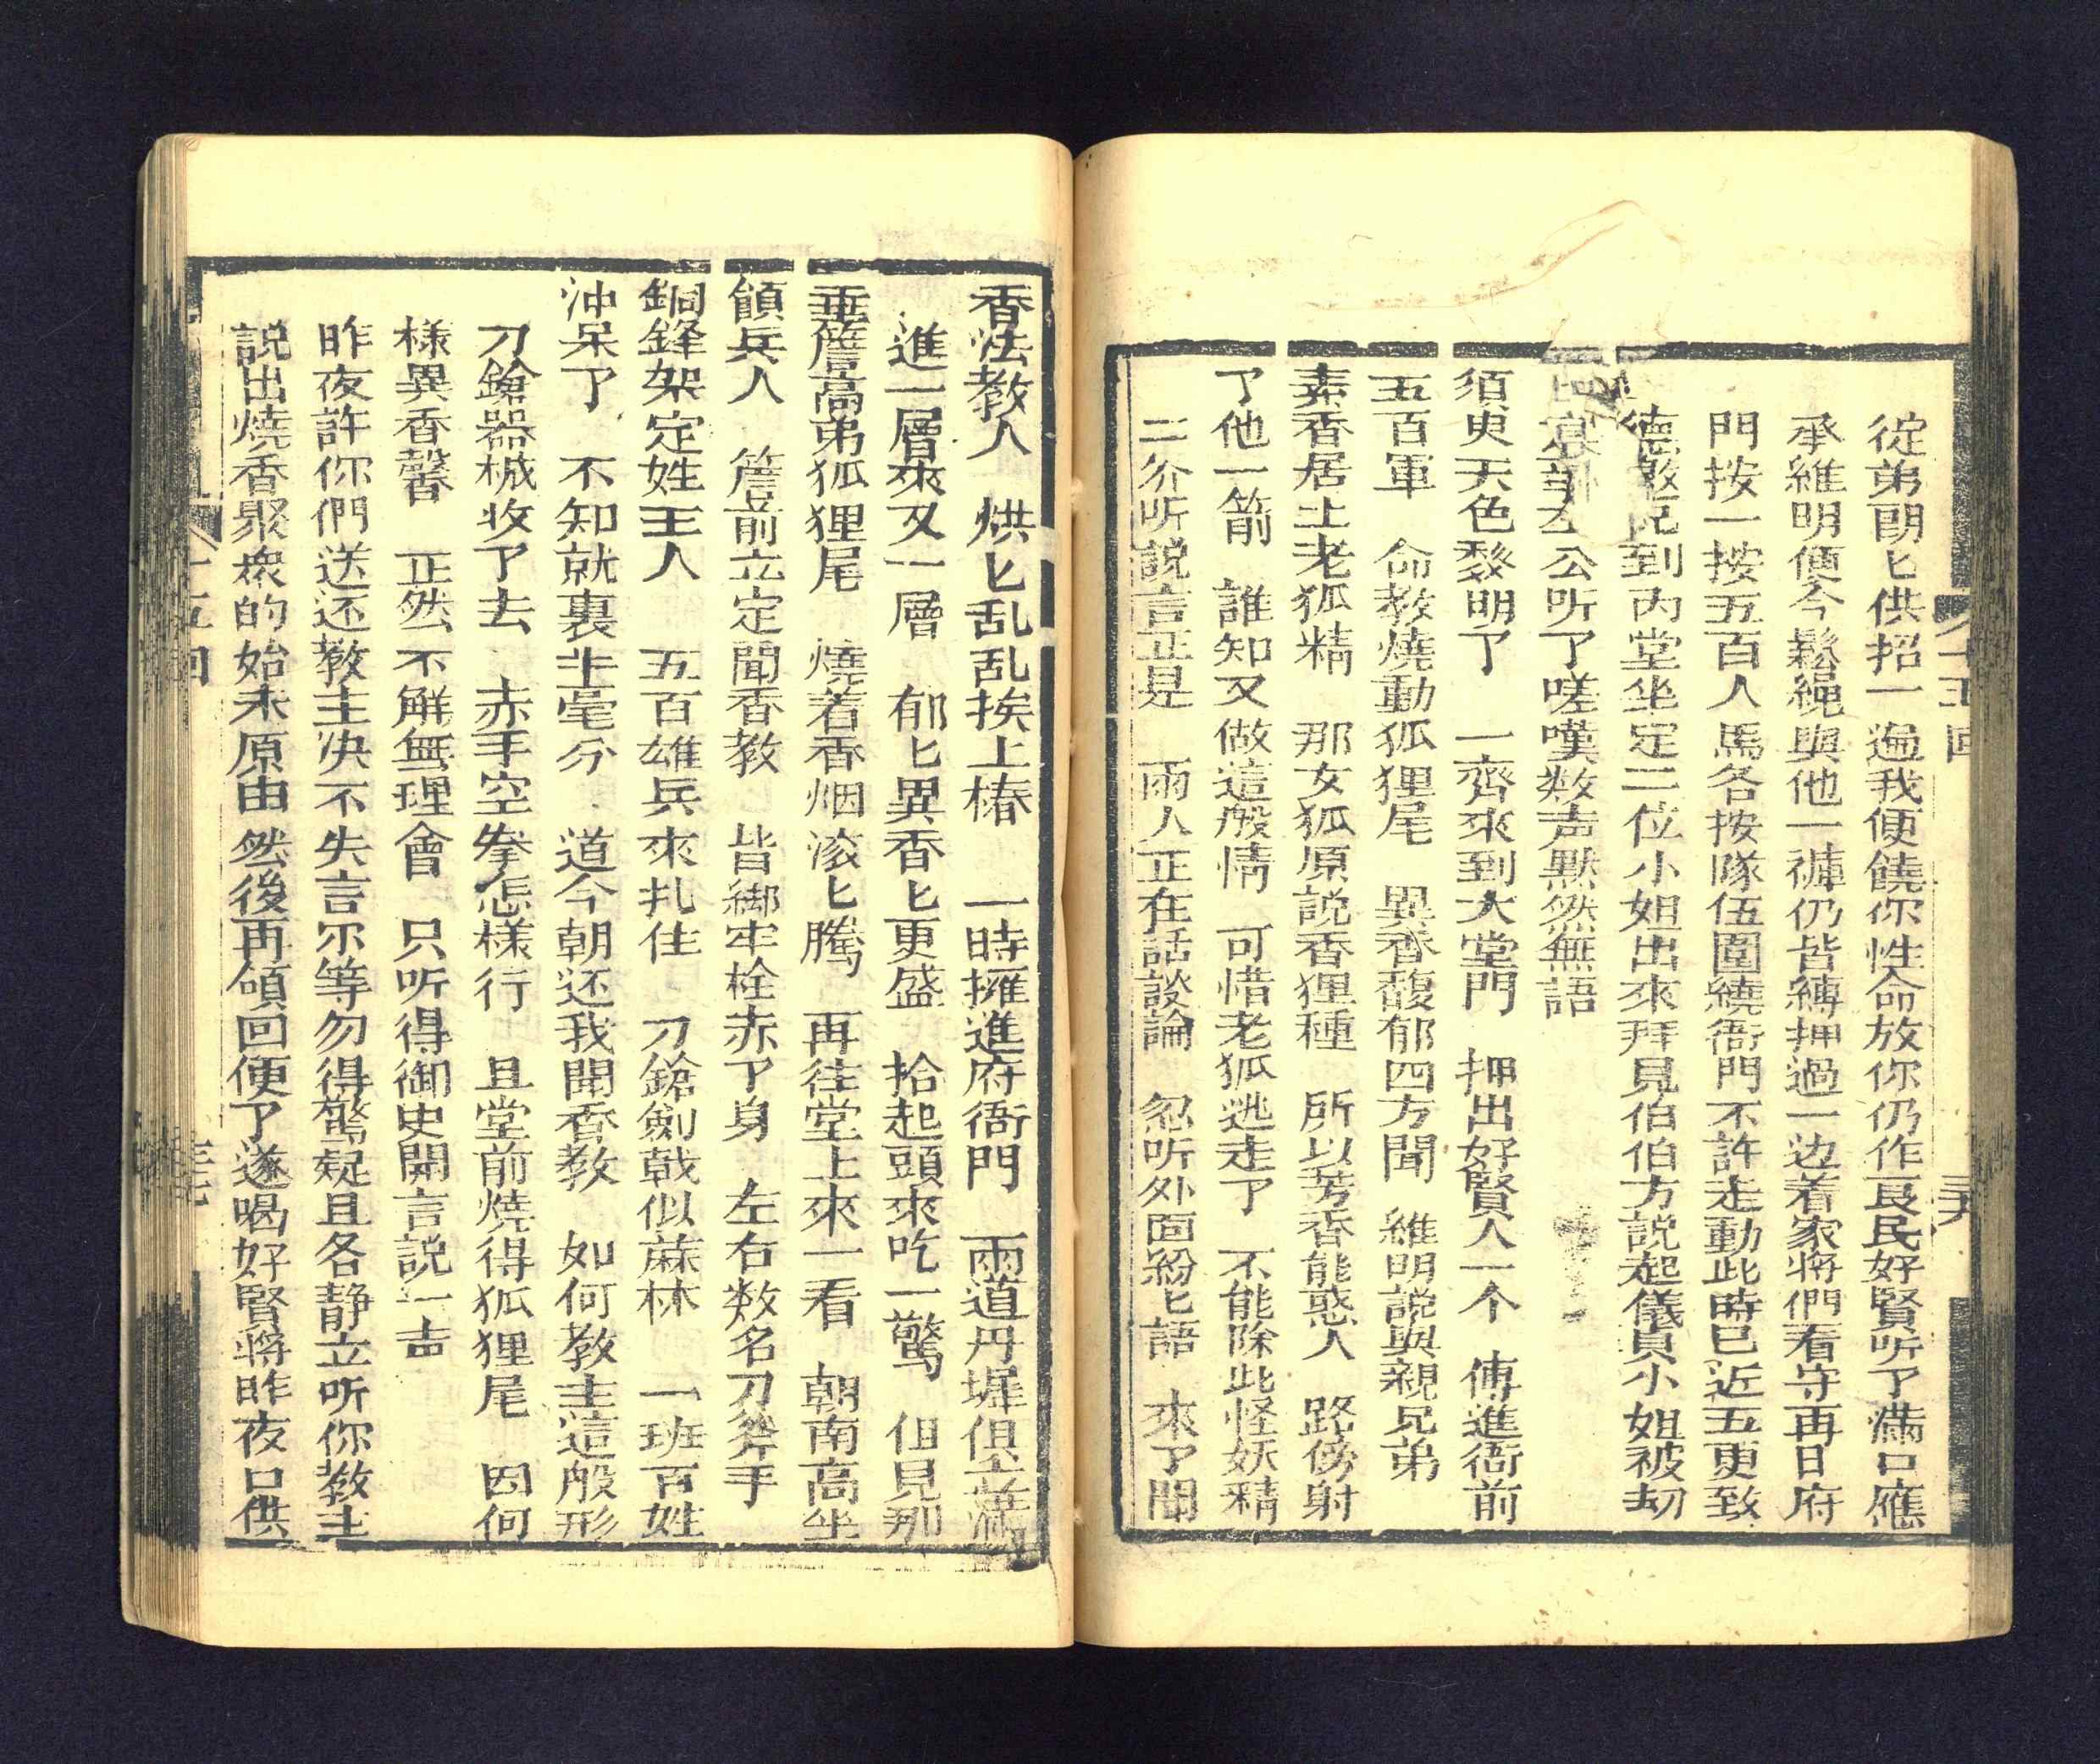 十五回
從弟朗匕供招一遍我便饒你性命放你仍作良民好賢听了滿口應
承維明便令鬆繩與他一褲仍皆縛押過一边着家將們看守再日府
門按一按五百人馬各按隊伍圍繞衙門不許走動此時已近五更致
德致兄到內堂坐定二位小姐出來拜見伯伯方説起儀貞小姐被刼
公听了嗟嘆数声默然無語
須臾天色發明了 一齊來到大堂門 押出好賢人一个 傳進衙前
五百軍 命教燒動狐狸尾 異香馥郁四方聞 維明說與親兄弟
素香居士老狐精 那女狐原説香狸種 所以芳香能惑人 路傍射
了他一箭 誰知又做這般情 可惜老狐逃走了 不能除此怪妖精
二爷听説言正是 兩人正在話談論 忽听外面紛匕語 來了聞
香法教人 烘匕乱乱挨上樁 一時擁進府衙門 兩道丹墀俱立滿
進一層來又一層 郁匕異香匕更盛 抬起頭來吃一驚 但見那
垂簷高弟狐狸尾 燒着香烟滚匕騰 再往堂上來一看 朝南高坐
領兵人 簷前立定聞香教 皆綁牢栓赤了身 左右数名刀斧手
鋼鋒架定姓王人 五百雄兵來扎住 刀鎗劍戟似蔴林 一班百姓
沖呆了 不知就裏半毫分 道今朝还我聞香教 如何教主這般形
刀鎗器械收了去 赤手空拳怎樣行 且堂前燒得狐狸尾 因何
樣異香馨 正然不解無理會 只听得御史開言説一声
昨夜許你們送还教主决不失言尔等勿得驚疑且各静立听你教主
説出燒香聚衆的始末原由然後再領回便了遂喝好賢將昨夜口供
十五回